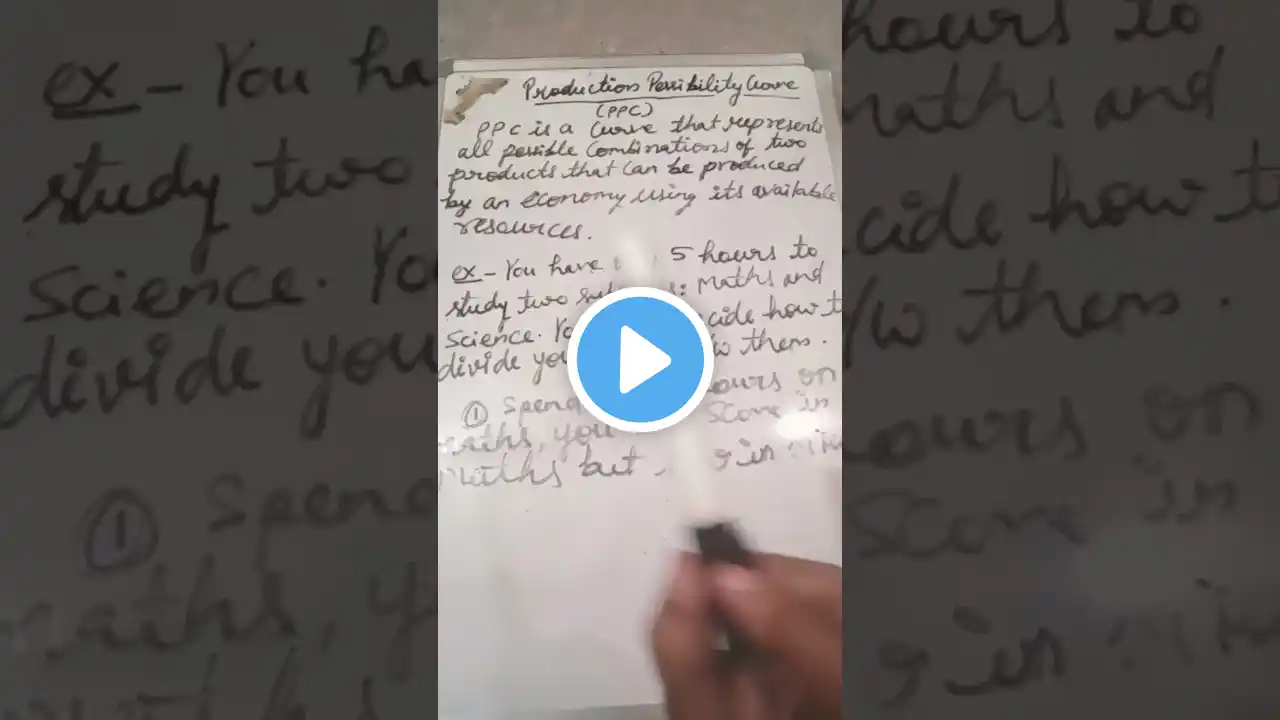 Production Possibility Curve
(PPC)
PPC is a curve that represents
all possible combinations of two
products that can be produced
by an economy using its available
resources.
ex - You have 5 hours to
study two maths and
science. how t
divide you b/w them.
① Spend hours on
maths, you score in
maths but in